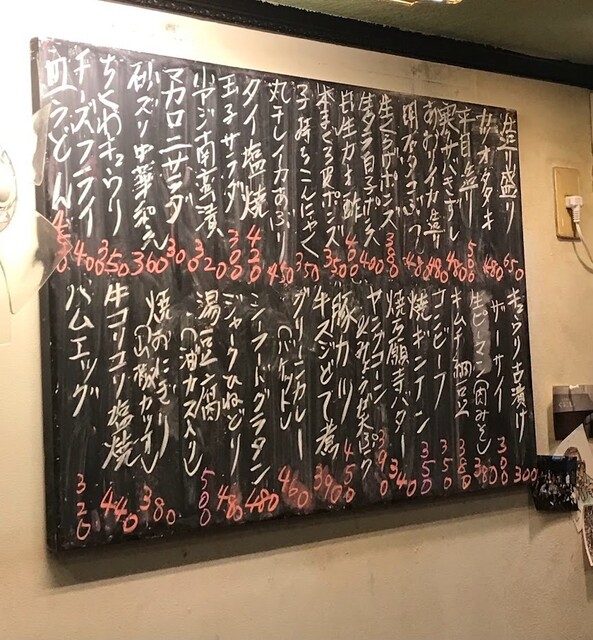 造り盛り 650
カツオタタキ 480
平目造り 500
実サバきずし 480
あおりイカ造り 480
明石タコぶつ 480
生くらげポンズ 380
生タラ白子ポンズ 400
生カキ酢 400
本まぐろ皮ポンズ 350
子持ちこんにゃく 350
丸干しイカあぶり 450
タイ塩焼 420
玉子サラダ 300
小アジ南蛮漬 320
マカロニサラダ 300
砂ズリ中華和え 360
ちくわキュウリ 350
チーズフライ 400
皿うどん 450
キュウリ古漬け 300
ザーサイ 300
生ピーマン(肉みそ) 380
キムチ納豆 380
コンビーフ 350
焼ギンナン 350
焼万願寺バター 340
ヤングコーン 390
豚カツ 450
牛スジどて煮 390
グリーンカレー(バケット) 460
シーフードグラタン 480
ジャークひねどり 480
湯豆腐(油カス入り) 500
焼おにぎり 380
牛コリコリ塩焼 440
ハムエッグ 320